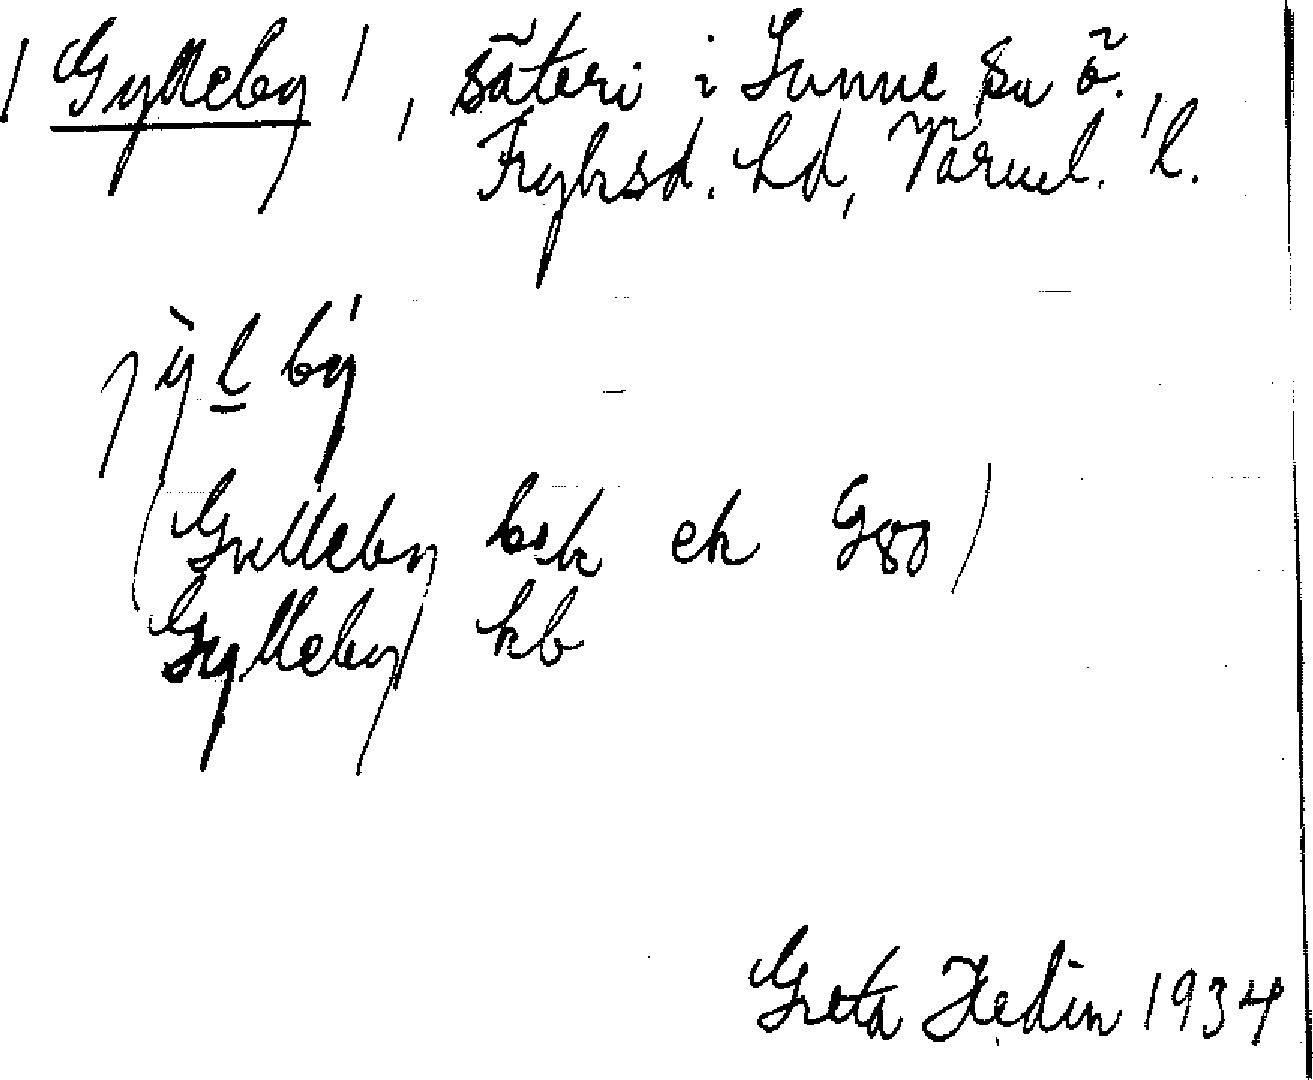 / Gylleby /, säteri i Sunne sn ö.
Fryksd. hd, Värml. l.
jỳl bý
(Gylleby bsk ek Ggg)
Gylleby kb
Greta Hedin 1934